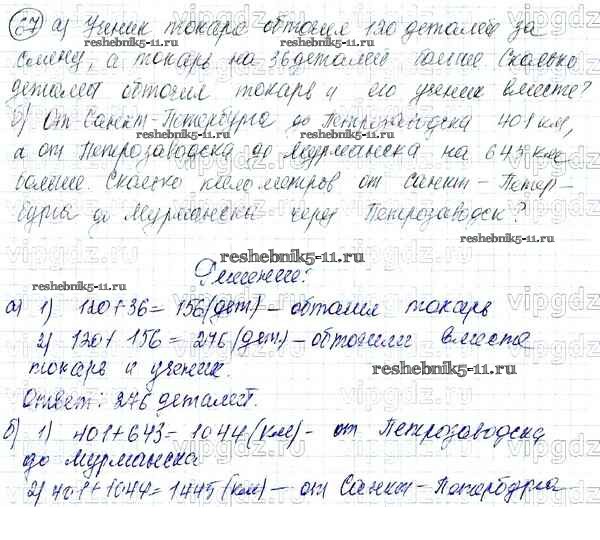 67 а) Ученик токаря обточил 120 деталей за
смену, а токарь на 36 деталей больше Сколько
деталей обточили токарь и его ученик вместе?
б) От Санкт-Петербурга до Петрозаводска 401 км,
а от Петрозаводска до Мурманска на 643 км
больше. Сколько километров от Санкт-Петер-
бурга до Мурманска через Петрозаводск?
Решение:
а) 1) 120+36=156(дет)- обточил токарь
2) 120+156=276(дет)- обточили вместе
токарь и ученик.
Ответ: 276 деталей.
б) 1) 401+643=1044(км)- от Петрозаводска
до Мурманска
2) 401+1044=1445(км)- от Санкт-Петербурга
reshebnik5-11.ru
vipgdz